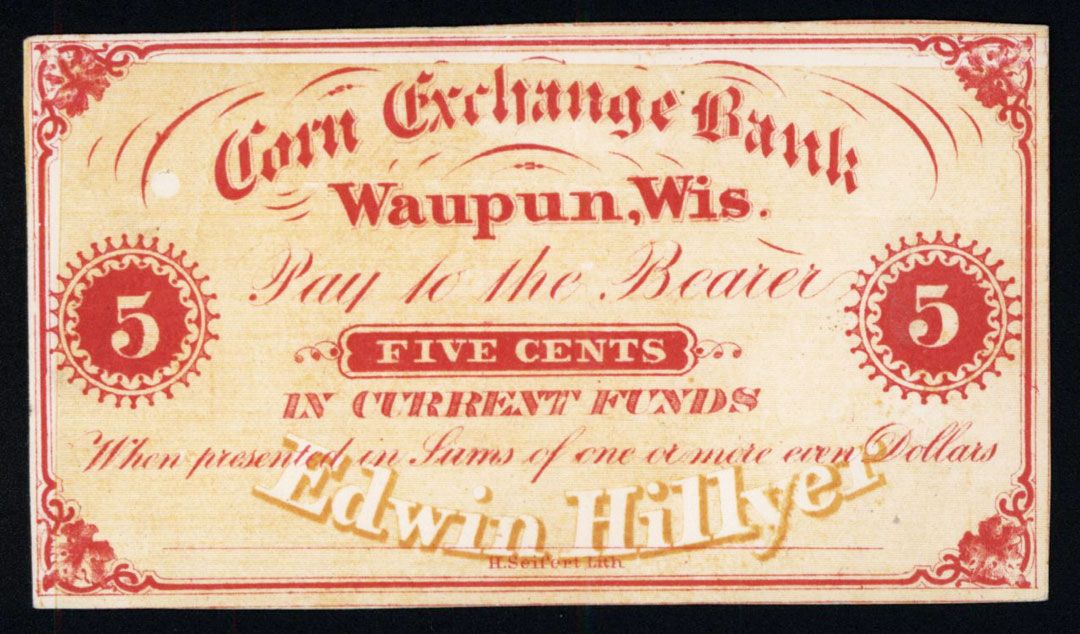 Corn Exchange Bank
Waupun, Wis.
Pay to the Bearer
5
5
FIVE CENTS
IN CURRENT FUNDS
When presented in Sums of one or more even Dollars
Edwin Hillyer
H. Seifert Lith